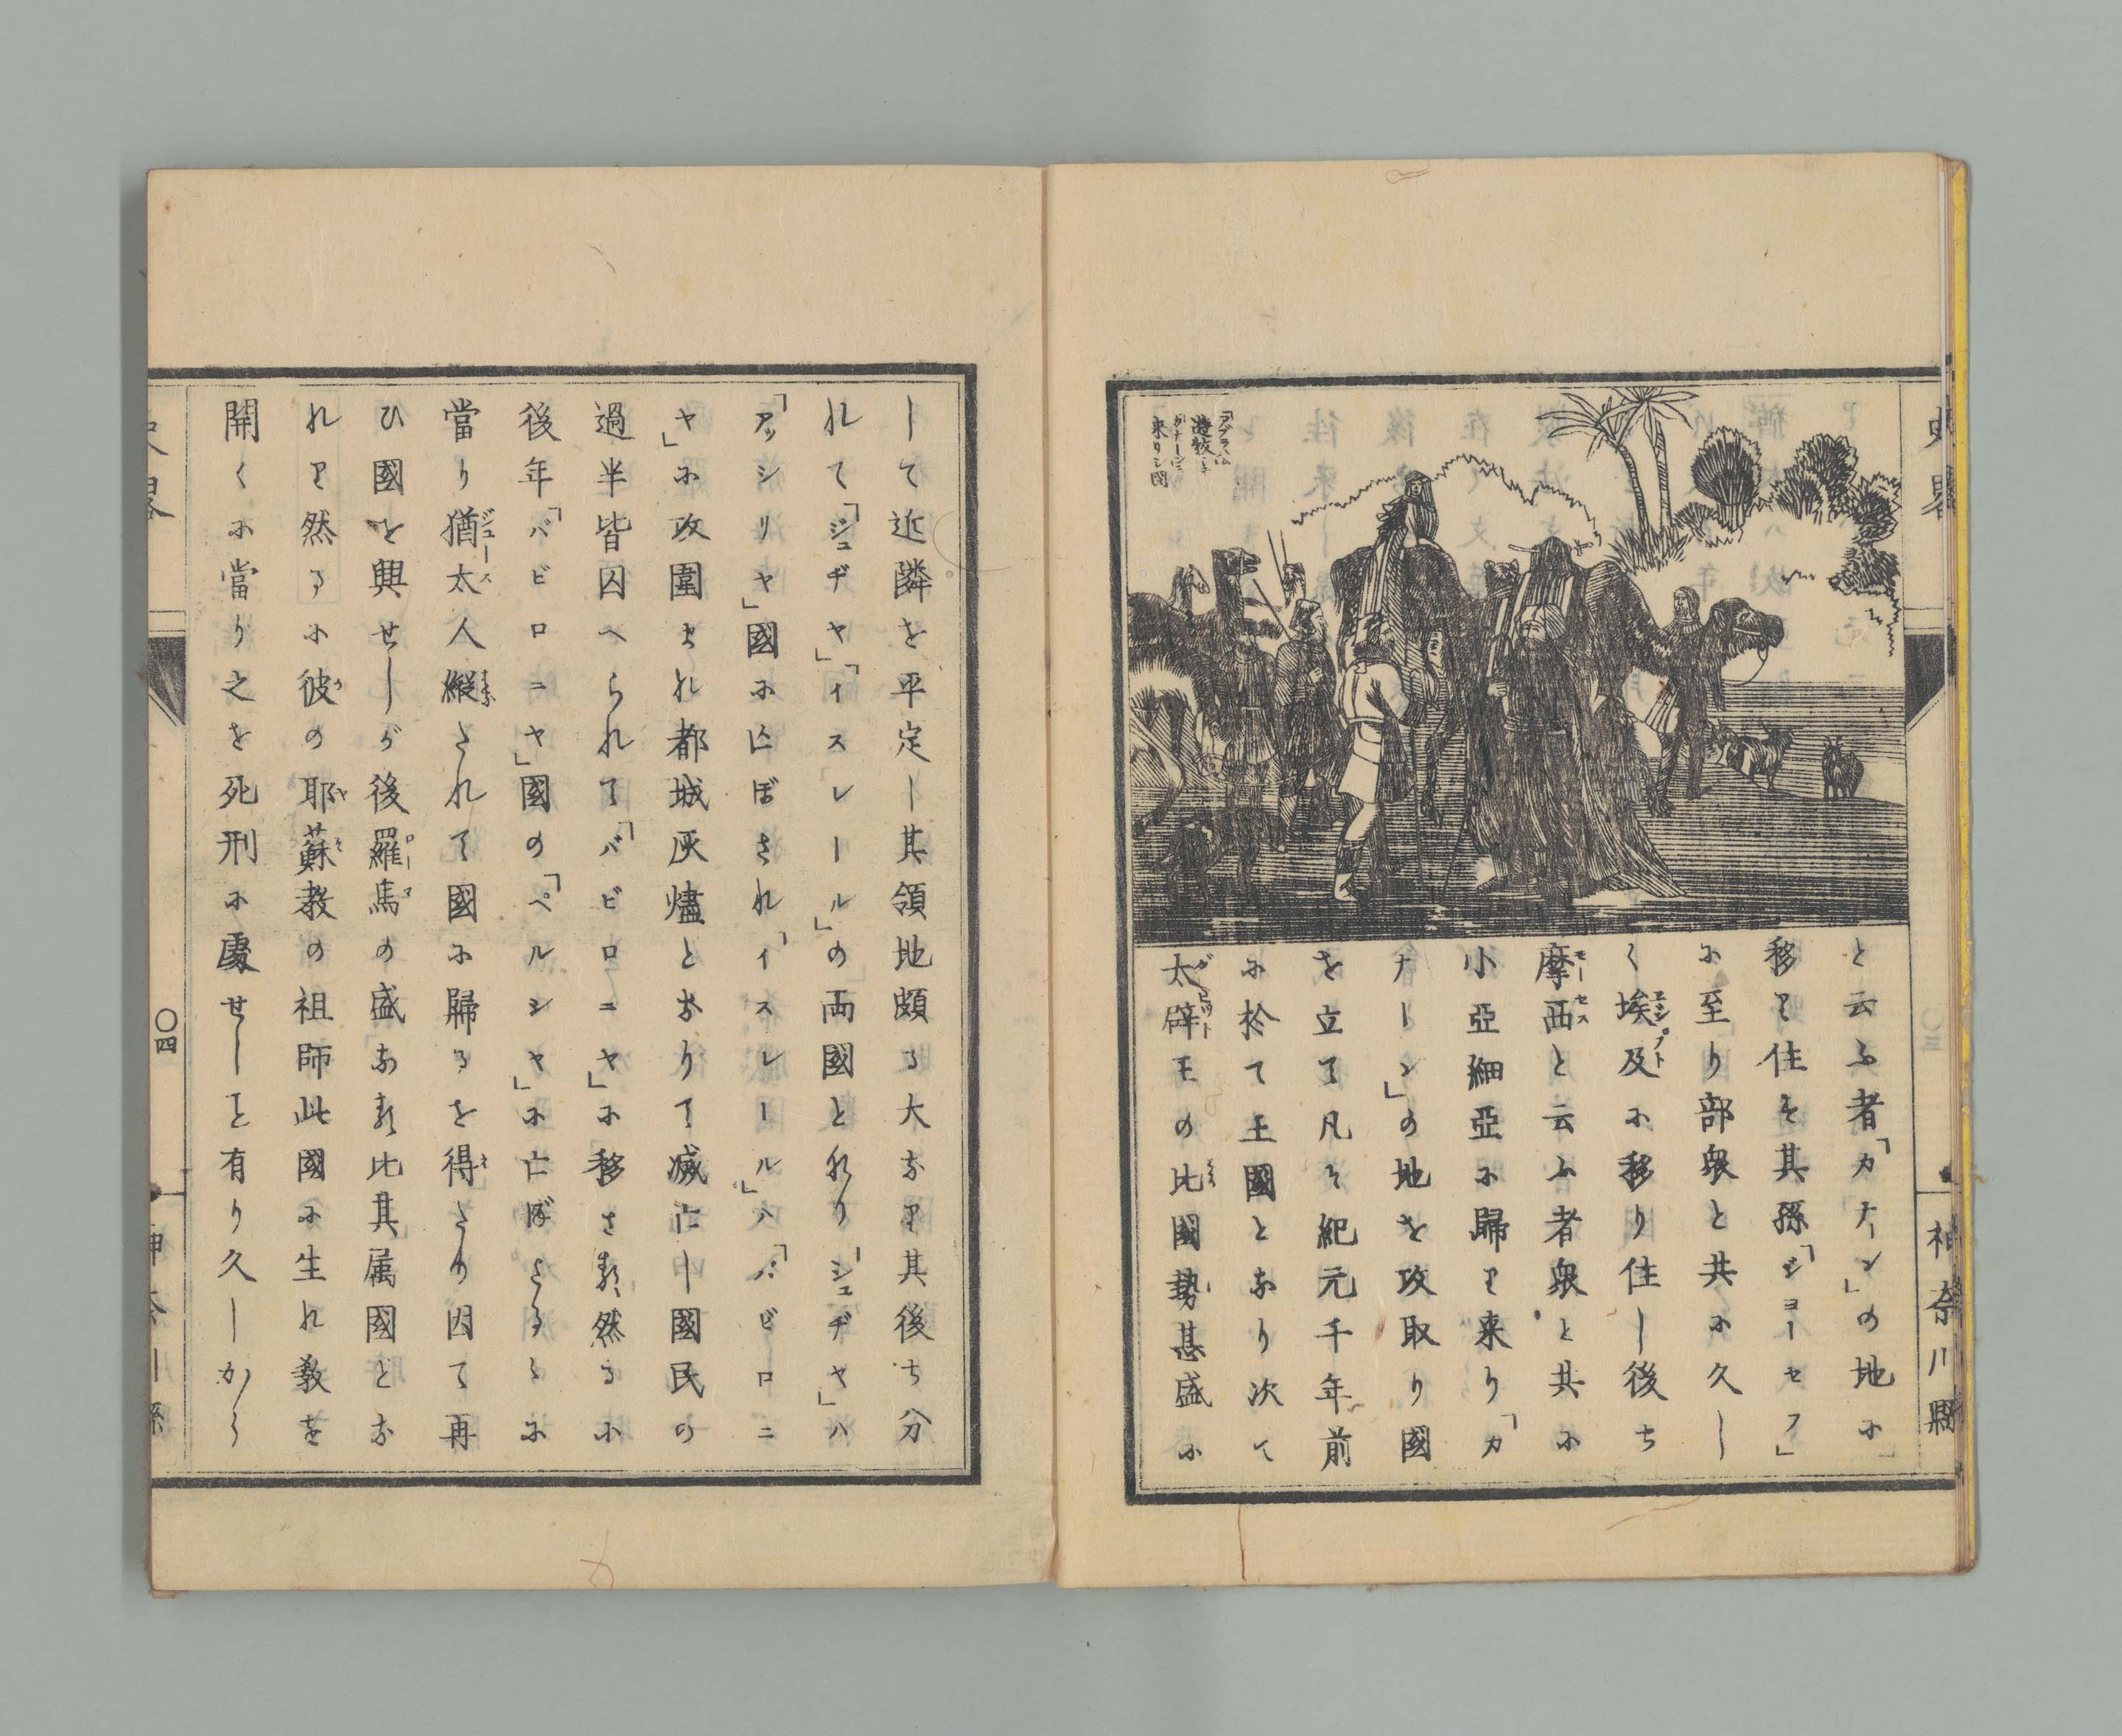 「アブラハム」
遊牧シテ
「カナーン」ニ
来リシ図
と云ふ者「カナーン」の地に
移り住す其孫「ジョーセフ」
に至り部衆と共に久し
く埃及に移り住し後ち
摩西と云ふ者衆と共に
小亞細亞に歸り来り「カ
ナーン」の地を攻取り國
を立て凡そ紀元千年前
に於て王國となり次て
太辟王の比國勢甚盛に
神奈川縣
して近隣を平定し其領地頗る大なり其後ち分
れて「ジュヂヤ」「イスレール」の両國と為り「ジュヂヤ」ハ
「アッシリヤ」國に亡ぼされ「イスレール」ハ「バビロニ
ヤ」に攻圍まれ都城灰燼となりて滅亡し國民の
過半皆囚へられて「バビロニヤ」に移さる然るに
後年「バビロニヤ」國の「ペルシヤ」に亡ぼさるゝに
當り猶太人縦されて國に歸るを得たり因て再
ひ國を興せしが後羅馬の盛なる比其属國とな
れり然るに彼の耶蘇教の祖師此國に生れ教を
開くに當り之を死刑に處せしこと有り久しから
〇四